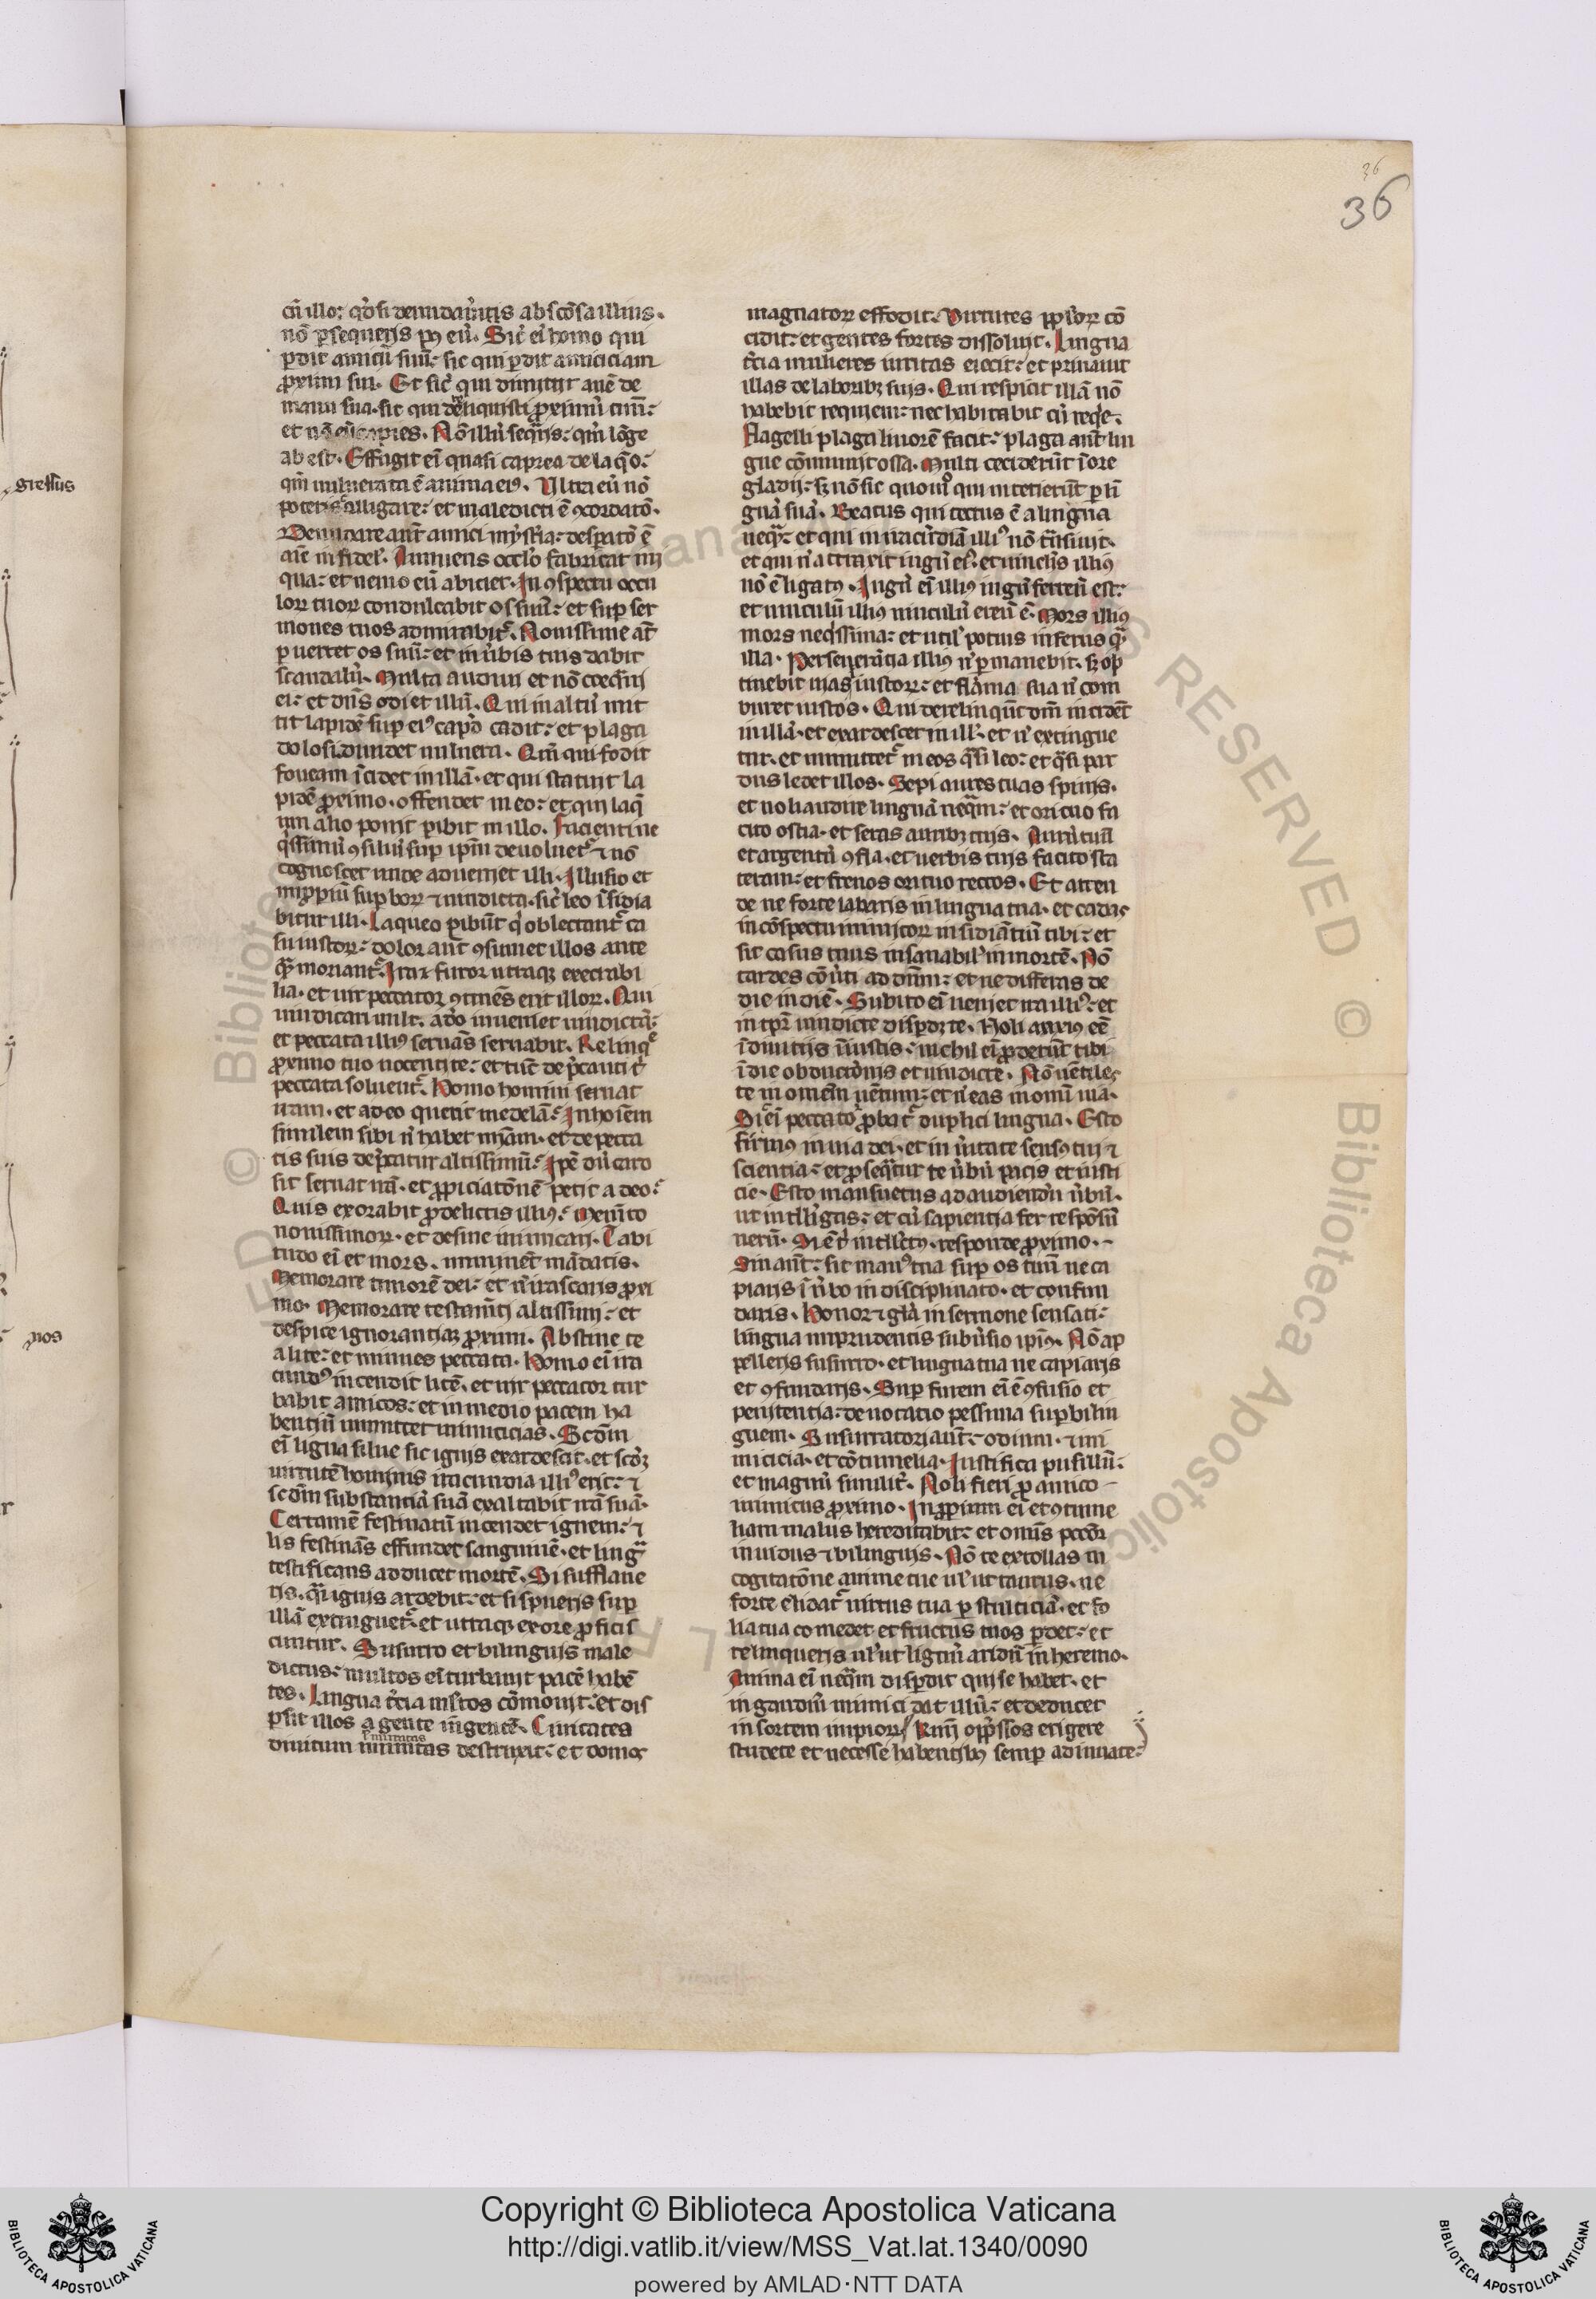 36
36
cū illo: qd̓ si denudau̓itis absco̅sa illius.
no̅ ꝑsequeris pꝰ eū. Sic̓ ei̅ homo qui
ꝑdit amicū suū: sic qui ꝑdit amiciciam
ꝓximi sui. Et sic̓ qui dimittit auē de
manu sua. sic qui dereliquisti ꝓximū tuū:
et no̅ eū capies. No̅ illū seq̓ris: qm̅ lo̅ge
abest. Effugit ei̅ quasi caprea de laq̓o:
qm̅ uulnerata ē anima eiꝰ. Ultra eū no̅
poteris alligare: et maledicti ē ꝯcordatō.
Denudare aut̅ amici mysṫia: despatō ē
aīe infidel̓. Annuens ocl̓o fabricat ini
qua: et nemo eū abiciet. In ꝯspectu ocu
loꝝ tuoꝝ condulcabit os suū: et suꝑ ser
mones tuos admirabit᷑. Nouissime at̅
ꝑuertet os suū: et in u̓bis tuis dabit
scandalū. Multa audiui et no̅ coeq̓ui
ei: et dn̅s odiet illū. Qui in altū mit
tit lapidē suꝑ eiꝰ cap̓d cadit: et plaga
dolosi diuidet uulnera. Qm̅ qui fodit
foueam i̅cidet in illā. et qui statuit la
pidē ꝓximo. offendet in eo: et qui laq̓
um alio ponit ꝑibit in illo. Facienti ne
q̓ssimū ꝯsiliū suꝑ ip̅m deuoluet᷑ ⁊ no̅
cognoscet unde adueniet illi. Illusio et
imꝓꝑiū suꝑboꝝ ⁊ uindicta. sic̓ leo i̅sidia
bitur illi. Laqueo ꝑibūt q̓ oblectant᷑ ca
su iustoꝝ: dolor aut̅ ꝯsumet illos ante
q̅ moriant᷑. Ira ⁊ furor utraqꝫ execrabi
lia. et uir peccator ꝯtinēs erit illoꝝ. Qui
uindicari uult. a dō inueniet uindictā:
et peccata illiꝰ seruās seruabit. Relinq̓
ꝓximo tuo nocenti te: et tūc dep̓canti t̓
peccata soluent᷑. Homo homini seruat
iram. et a deo querit medelā: In hoiēm
similem sibi n̓ habet mīam. et de pecca
tis suis dep̓catur altissimū: Ip̅e dū caro
sit seruat irā. et ꝓpiciatōnē petit a deo:
Quis exorabit ꝓ delictis illiꝰ: Mem̅to
nouissimoꝝ. et desine inimicari. Tabi
tudo ei̅ et mors. imminēt mādatis.
Memorare timorē dei: et n̓ irascaris ꝓxi
mo. Memorare testam̅ti altissimi: et
despice ignorantiaꝫ ꝓximi. Abstine te
a lite: et minues peccata. Homo ei̅ ira
cundꝰ incendit litē. et uir peccator tur
babit amicos: et in medio pacem ha
bentiū immittet inimicicias. Scd̅m
ei̅ ligna silue sic ignis exardescit. et scd̅ꝫ
uirtutē hominis iracundia illiꝰ erit: ⁊
scd̅m substanciā suā exaltabit irā suā.
Certamē festinatū incendet ignem: ⁊
lis festinās effundet sanguinē. et ling̓
testificans adducet mortē. Si sufflaue
ris. q̓i ignis ardebit: et si spueris suꝑ
illā extinguet᷑: et utraqꝫ ex ore ꝓficis
cuntur. Susurro et bilinguis male
dictus: multos ei̅ turbauit pacē habē
tes. Lingua t̓cia multos cōmouit: et dis
ꝑsit illos a gente in gentē. Ciuitates
diuitum munitas destruxit: et domos
magnatoꝝ effodit: Virtutes ppl̓oꝝ cō
cidit: et gentes fortes dissoluit. Lingua
t̓cia mulieres uiritas eiecit: et priuauit
illas de laboribꝫ suis. Qui respicit illā nō
habebit requiem: nec habitabit cū reqe̓.
Flagelli plaga liuorē facit: plaga aut̅ lin
gue cōminuit ossa. Multi ceciderūt i̅ ore
gladij: sꝫ nō sic quomͦ qui interierūt ꝑ li̅
guā suā. Beatus qui tectus ē a lingua
neq̓: et qui in iracūdiā illiꝰ nō tn̅siuit.
et qui n̓ attraxit iugū eiꝰ. et uinclis illiꝰ
nō ē ligatꝰ. Iugū ei̅ illiꝰ iugū ferreū est:
et uinculū illiꝰ uinculū ereū ē. Mors illiꝰ
mors neqssima: et util̓ potius infernus q̅
illa. Perseuerātia illiꝰ n̓ ꝑmanebit. sꝫ op
tinebit uias iniustoꝝ: et flāma sua n̓ com
buret iustos. Qui derelinqūt dm̅ incidēt
in illā. et exardescet in ill̓. et n̓ extingue
tur. et immittet᷑ in eos q̓si leo: et q̓si par
dus ledet illos. Sepi aures tuas spinis.
et noli audire linguā neq̓m: et ori tuo fa
cito ostia. et seras auribꝫ tuis. Aurū tuū
et argentū ꝯfla. et uerbis tuis facito sta
teram: et frenos ori tuo rectos. Et atten
de ne forte labaris in lingua tua. et cadas
in cōspectu inimicoꝝ insidiātiū tibi: et
sit casus tuus insanabil̓ in mortē. Nō
tardes cōu̓ti ad dūm: et ne differas de
die in diē. Subito ei̅ ueniet ira illiꝰ: et
in tp̅r uindicte disꝑdet te. Noli anxiꝰ eē
i̅ diuitijs i̅iustis: nichil ei̅ ꝓderūt tibi
i̅ die obductōnis et uindicte. Nō uētiles
te in omēm uētum: et n̓ eas in omm̅ uiā.
Sic̓ ei̅ peccatō ꝓbat᷑ duplici lingua. Esto
firmꝰ in uia dei. et in u̓itate sensꝰ tui ⁊
scientia: et ꝓseq̓tur te u̓bū pacis et iusti
cie. Esto mansuetus ad audiendū u̓bū.
ut intll̓igas: et cū sapientia fer respōsū
uerū. Si ē t̓ intll̓ctꝰ. responde ꝓximo.
Sin aut̅: sit manꝰ tua suꝑ os tuū ne ca
piaris i̅ u̓bo indisciplinato. et confun
daris. Honor ⁊ gl̓a in sermone sensati:
lingua imprudentis subu̓sio ipiꝰ. Nō ap
pelleris susurro. et lingua tua ne capiaris
et ꝯfundaris. Suꝑ furem ei̅ ē ꝯfusio et
penitentia: denotatio pessima suꝑ bilin
guem. Susurratori aut̅: odium. ⁊ ini
micicia. et cōtumelia. Iustifica pusillū:
et magnū similit̓. Noli fieri ꝓ amico
inimicus ꝓximo. Inꝓꝑium ei̅ et ꝯtume
liam malus hereditabit: et omn̅s peccōr
inuidus ⁊ bilinguis. Nō te extollas in
cogitatōne anime tue ul̓ut taurus. ne
forte elidat᷑ uirtus tua ꝑ stulticiā. et fo
lia tua comedet et fructus tuos ꝑdet: et
relinqueris ul̓ut lignū aridū in heremo.
Anima ei̅ neq̓m disꝑdit qui se habet. et
in gaudiū inimici dat illū: et deducet
in sortem impioꝝ. Kmi̅ opp̓ssos erigere
studete et necesse habentibꝰ semꝑ adiuuate:
gressus
nos
Copyright © Biblioteca Apostolica Vaticana
http://digi.vatlib.it/view/MSS_Vat.lat.1340/0090
powered by AMLAD·NTT DATA
BIBLIOTECA APOSTOLICA VATICANA
BIBLIOTECA APOSTOLICA VATICANA